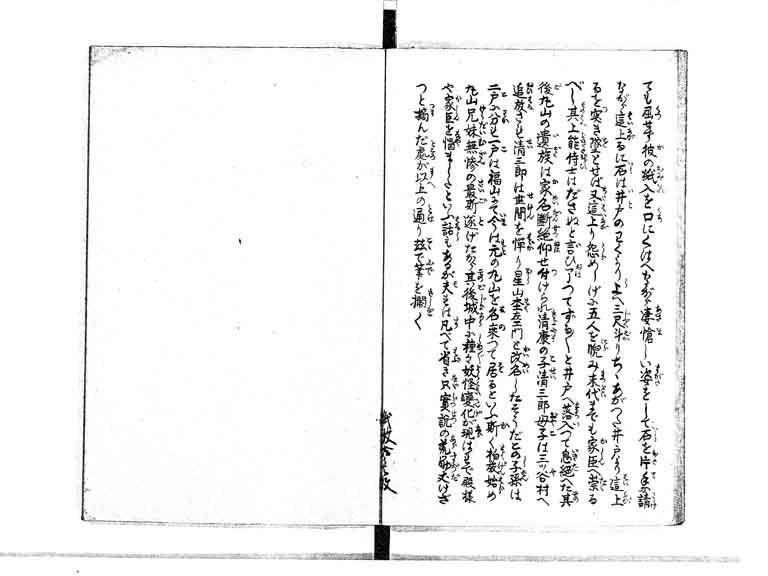 ても屈せず彼の紙入を口にくはへながら凄愴しい姿をして石を片手に請
ながら這上るに石は井戸の上へ三尺斗りもあがつた井戸より這上
るを突き墜とせば又這上り怨めしげに五人を睨み末代までも家臣へ祟る
べし其上能侍士はださぬと言ひ了つてずる〳〵と井戸へ落入つて息絶へた其
後丸山の遺族は家名断絶仰せ付けられ清康の子清三郎母子は三ッ谷村へ
追放され清三郎は世間を憚り星山杢左エ門と改名したそうだとの子孫は
二戸に分れ一戸は福山にて今は元の丸山を名乗つて居るといふ斯く柏葢始め
丸山兄妹無惨の最期遂げたが其後城中に種々妖怪変化が現はれて殿様
や家臣を悩ましたといふ話もあるが夫等は凡べて省き只実説の荒筋丈けざ
つと摘んだ処が以上の通り玆で筆を擱く